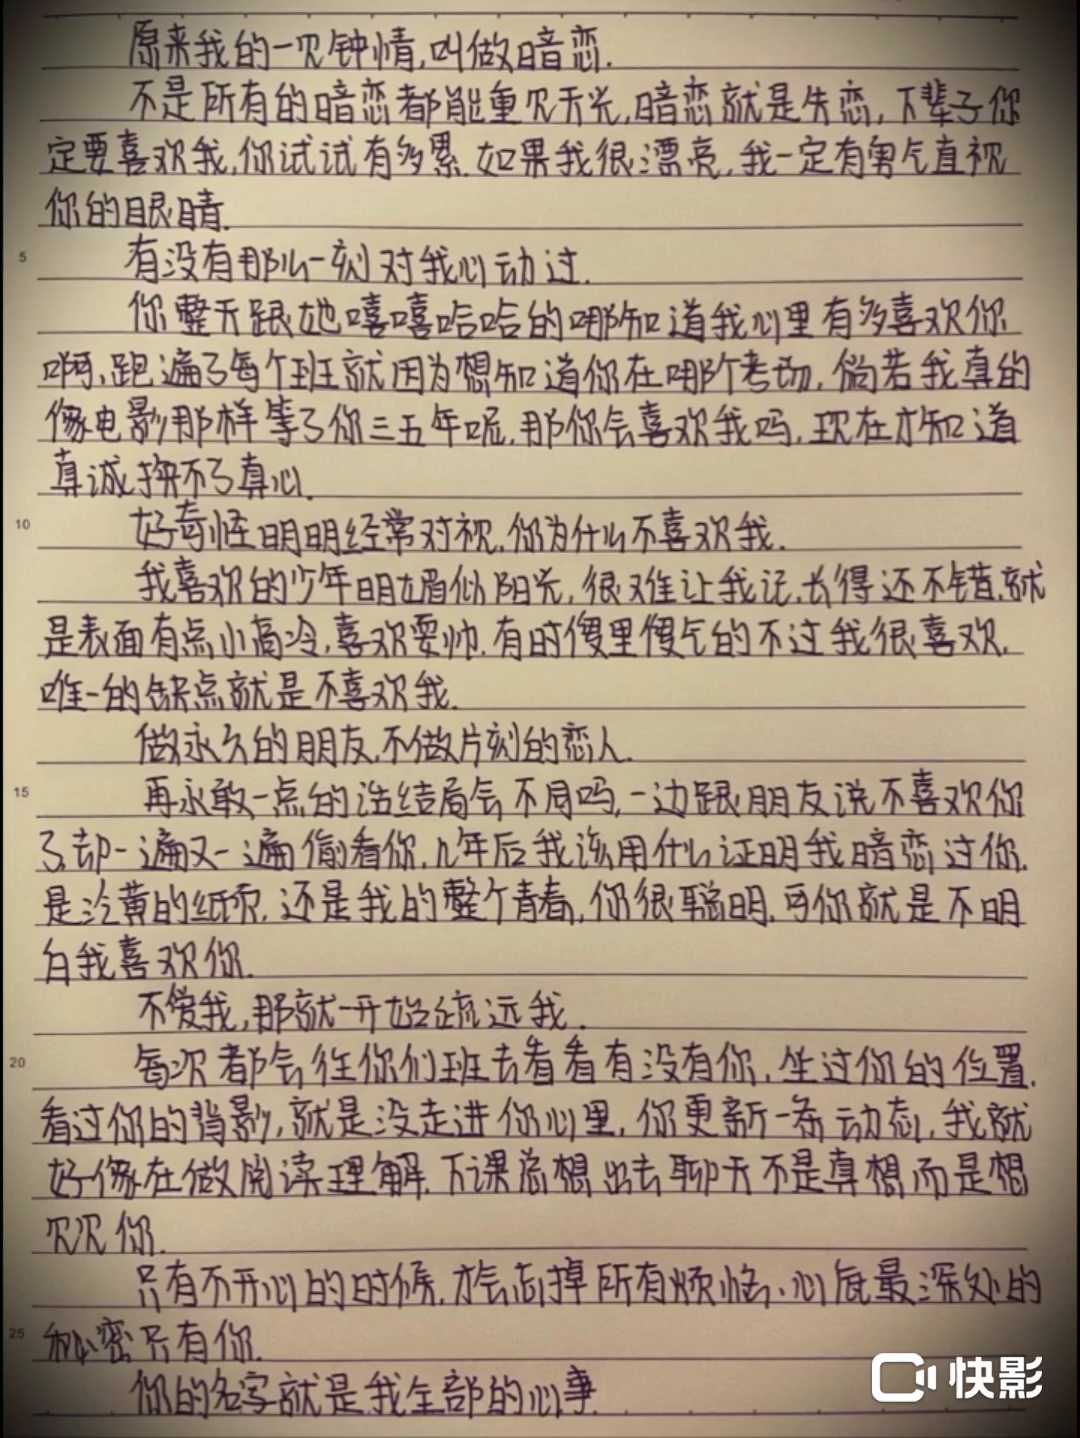 原来我的一次钟情,叫做暗恋.
不是所有的暗恋都能重见天光,暗恋就是失恋,下辈子你
定要喜欢我,你试试有多累.如果我很漂亮,我一定有勇气直视
你的眼睛.
5 有没有那么一刻对我心动过.
你整天跟她嘻嘻哈哈的哪知道我心里有多喜欢你
啊,跑遍了每个班就因为想知道你在哪个考场,倘若我真的
像电影那样等了你三五年呢,那你会喜欢我吗,现在才知道
真诚换不了真心.
10 好奇怪明明经常对视,你为什么不喜欢我.
我喜欢的少年明媚似阳光,很难让我记.长得还不错.就
是表面有点小高冷,喜欢耍帅.有时傻里傻气的不过我很喜欢.
唯一的缺点就是不喜欢我.
做永久的朋友,不做片刻的恋人.
15 再勇敢一点的话结局会不同吗,一边跟朋友说不喜欢你
了,却一遍又一遍偷看你.几年后我该用什么证明我暗恋过你.
是泛黄的纸页,还是我的整个青春,你很聪明,可你就是不明
白我喜欢你.
不爱我,那就一开始疏远我.
20 每次都会往你们班去看看有没有你,坐过你的位置.
看过你的背影,就是没走进你心里,你更新一条动态,我就
好像在做阅读理解.下课总想出去聊天不是真想而是想
见见你.
只有不开心的时候,才会忘掉所有烦恼、心底最深处的
25 秘密只有你.
你的名字就是我全部的心事.
快影